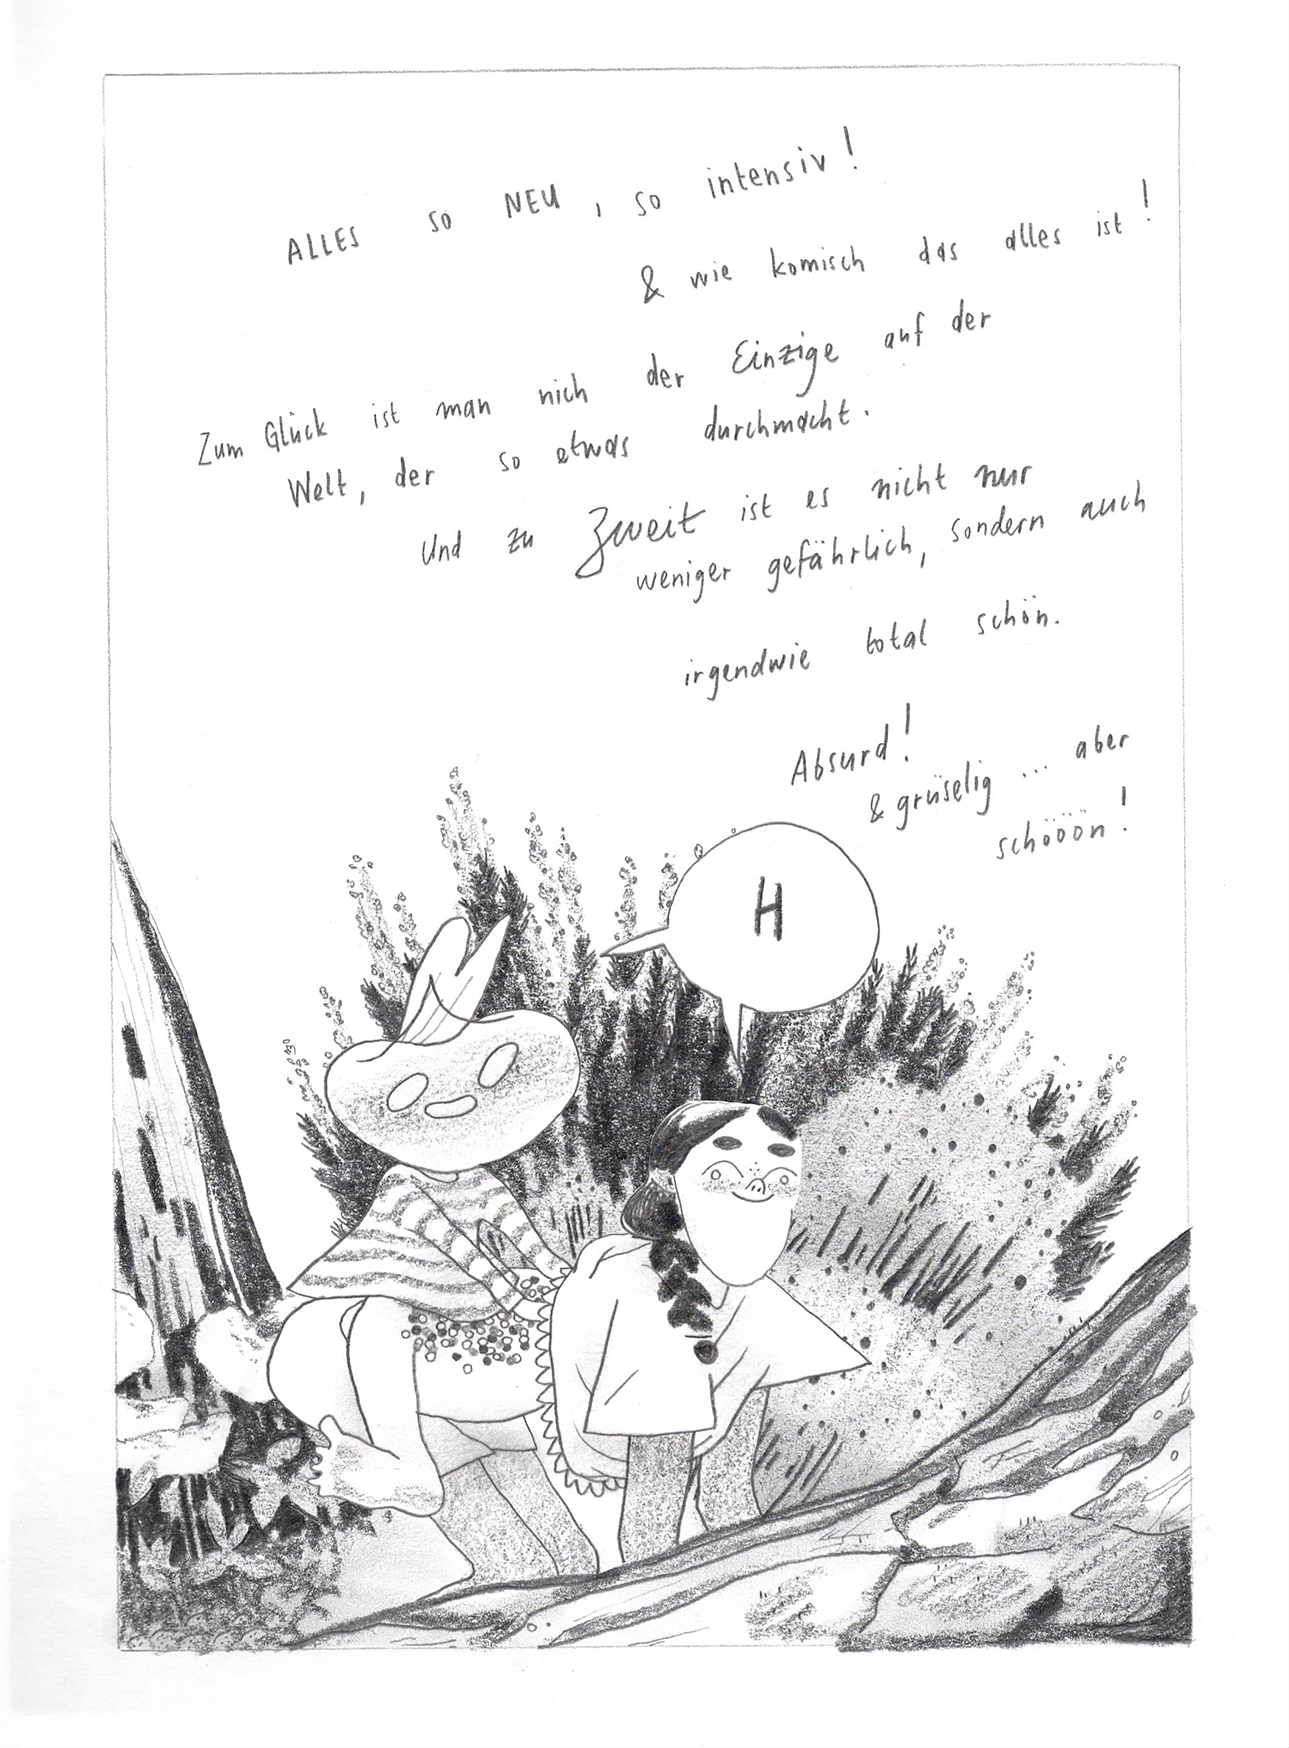 ALLES so NEU, so intensiv!
& wie komisch das alles ist!
Zum Glück ist man nich der Einzige auf der
Welt, der so etwas durchmacht.
Und zu Zweit ist es nicht nur
weniger gefährlich, sondern auch
irgendwie total schön.
Absurd!
& grüselig ... aber
schööön!
H